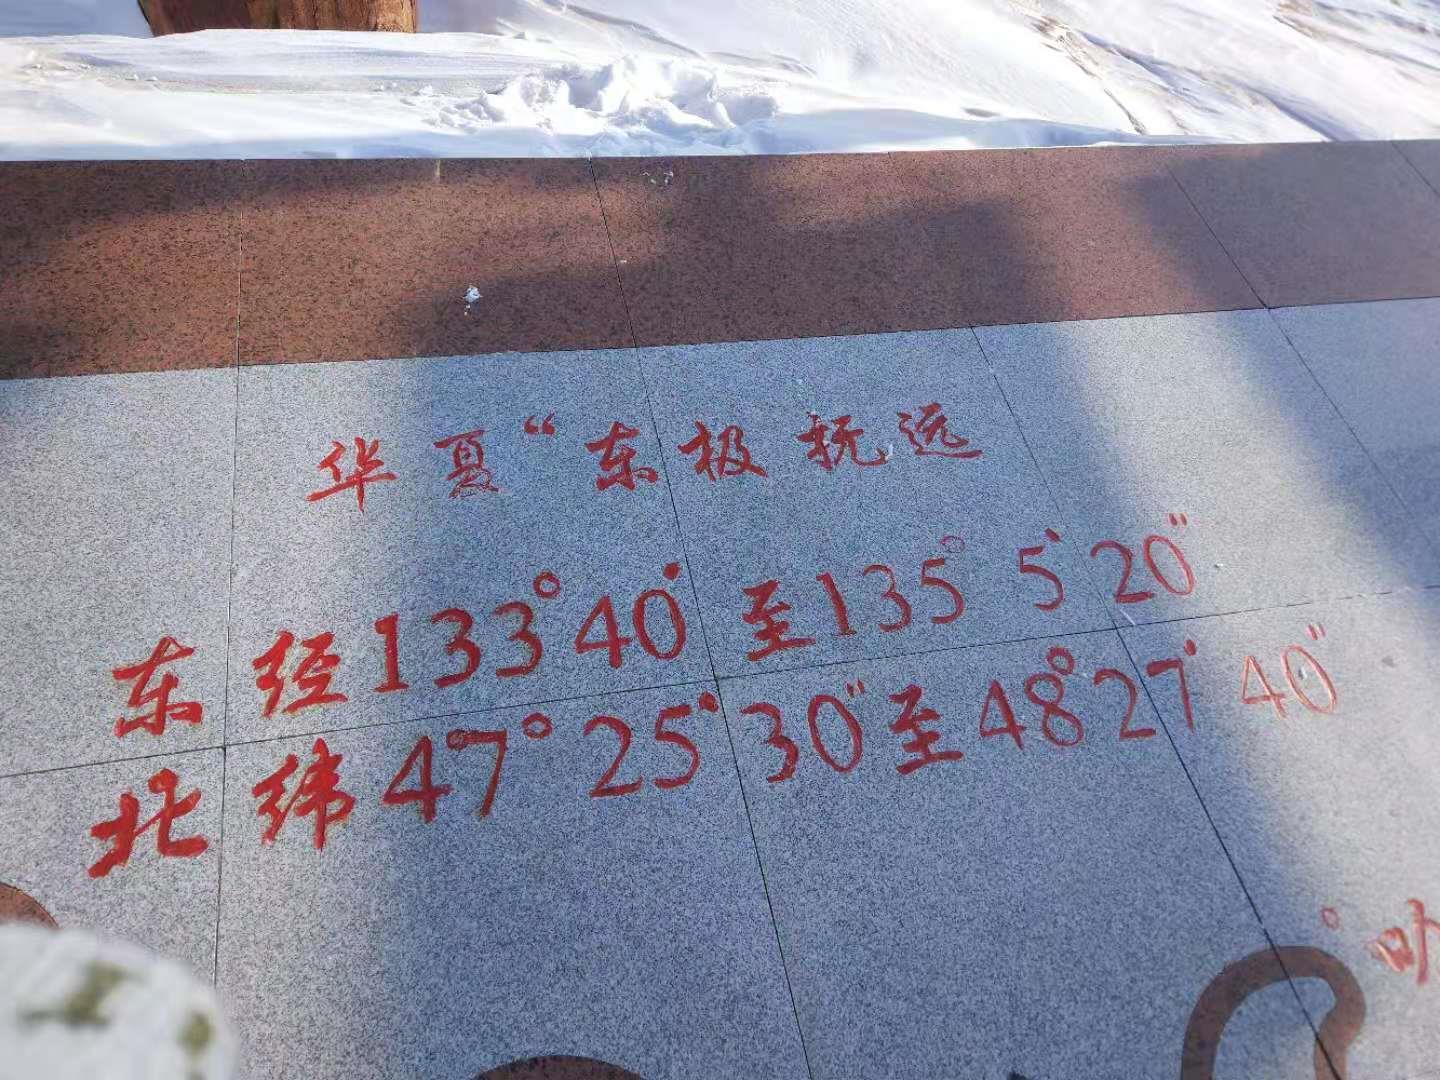 华夏“东极抚远
东经133°40′至135°5′20″
北纬47°25′30″至48°27′40″